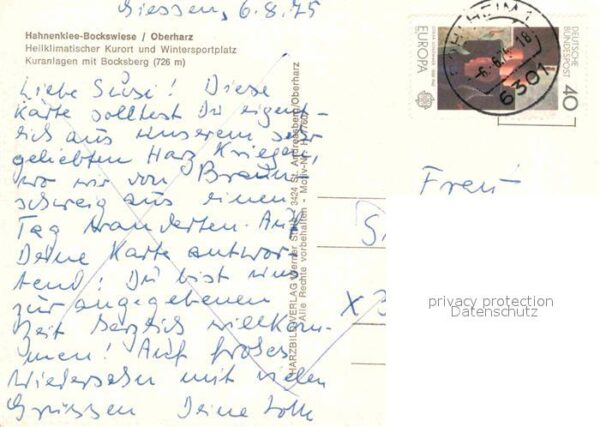 Giessen, 6.8.75
Hahnenklee-Bockswiese / Oberharz
Heilklimatischer Kurort und Wintersportplatz
Kuranlagen mit Bocksberg (726 m)
Liebe Susi! Diese
Karte solltest Du eigent-
lich aus unserem sehr
geliebten Harz kriegen,
wo wir von Braun-
schweig aus einen
Tag wanderten. Auf
Deine Karte antwor-
tend: Du bist uns
zur angegebenen
Zeit herzlich willkom-
men! Auf frohes
Wiedersehn mit vielen
Grüssen Deine Lolle
HARZBILDVERLAG Werner 3424 St. Andreasberg/Oberharz
Alle Rechte vorbehalten - Motiv-Nr.
EUROPA
DEUTSCHE
BUNDESPOST
40
6301
Frau
privacy protection
Datenschutz